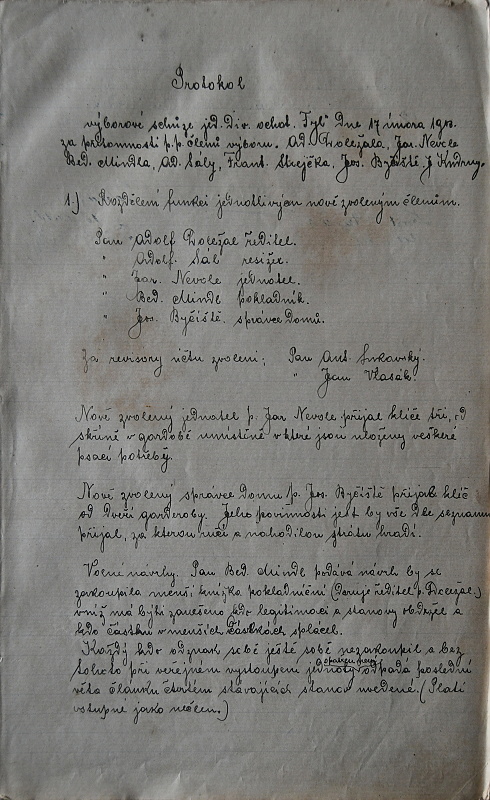 Protokol
výborové schůze jed. Div. ochot. "Tyl" Dne 17 února
za přítomnosti p.p. členů výboru. Ad. Doležala, Jar. Nevole
Bed. Mindla, Ad. Sály, Frant. Strejčka, Jos. Byčiště J
1.) Rozdělení funkcí jednotlivých nově zvoleným členům.
Pan Adolf Doležal ředitel.
" Adolf. Sál resižer.
" Jar. Nevole jednatel.
" Bed. Mindl pokladník.
" Jos. Byčiště. správce Domů.
Za revisory účtu zvoleni; Pan Ant.
" Jan Vlasák.
Nově zvolený jednatel p. Jar Nevole přijal klíče tři, od
skříně v gardobě umístěné v které jsou uloženy veškeré
psací potřeby.
Nově zvolený správce Domu p. Jos. Byčiště přijal klíč
od dveří garderoby. Jeho povinností jest by vše dle seznamu
přijal, za kterou ručí a nahodilou ztrátu hradí.
Volné návrhy. Pan Bed. Mindl podává návrh by se
zakoupila menší knížka pokladniční (Daruje ředitel p. Doležal.)
v níž má býti zaneseno kdo legitimaci a stanovy obdržel a
kdo částku v menších částkách splácel.
Každý kdo odznak sobě ještě sobě nezakoupil a bez
tohoto při veřejném vystoupení jednoty odpadá poslední
věta článku čtvrtém stávajících stanov uvedené. (Platí
vstupné jako nečlen.)